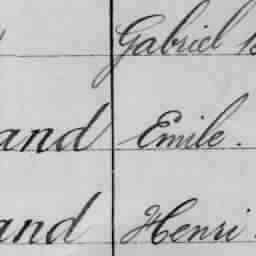 Gabriel
and Emile.
and Henri